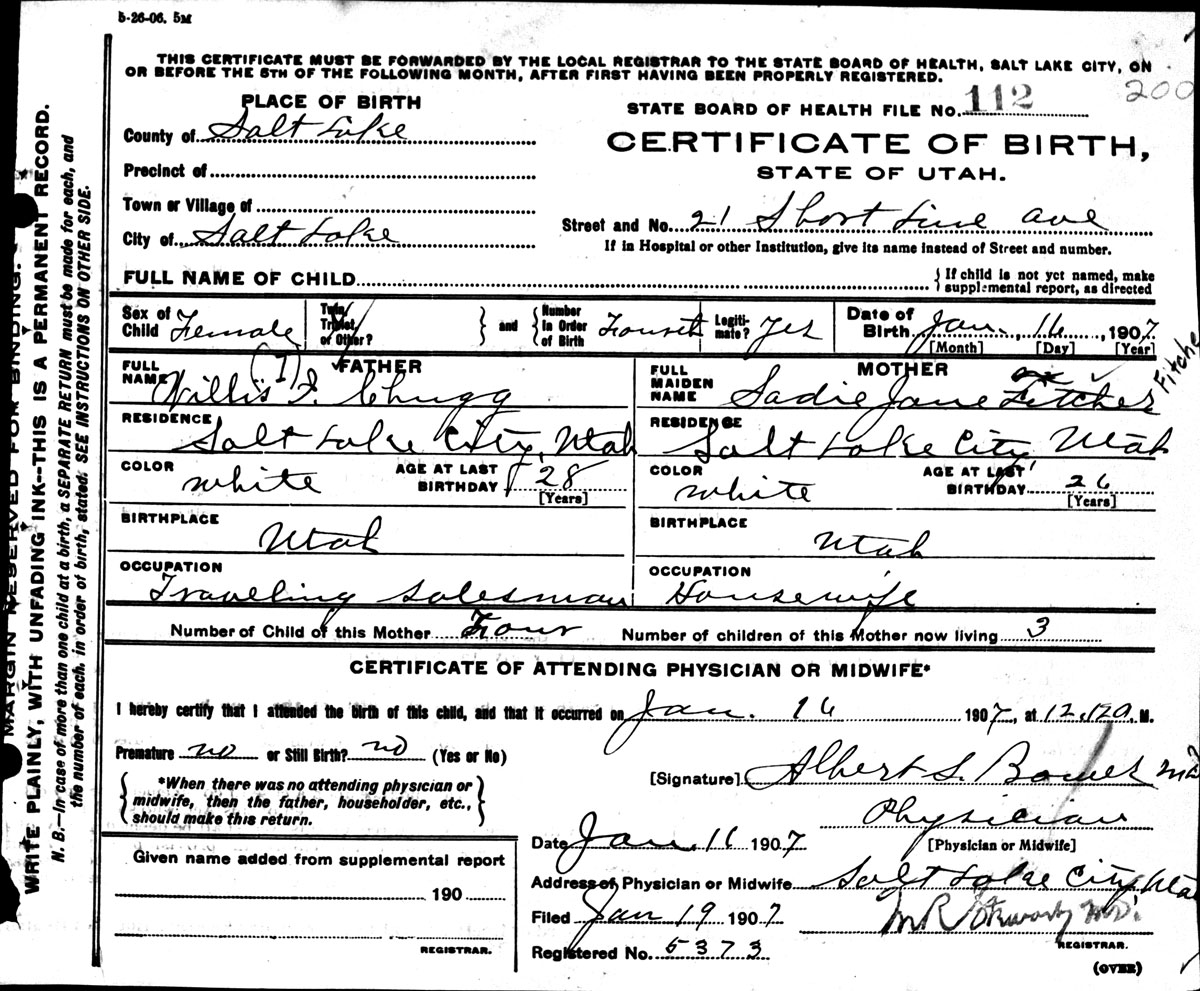 5-26-06. 5M
THIS CERTIFICATE MUST BE FORWARDED BY THE LOCAL REGISTRAR TO THE STATE BOARD OF HEALTH, SALT LAKE CITY, ON
OR BEFORE THE 5TH OF THE FOLLOWING MONTH, AFTER FIRST HAVING BEEN PROPERLY REGISTERED.
200
PLACE OF BIRTH
STATE BOARD OF HEALTH FILE No. 112
County of Salt Lake
CERTIFICATE OF BIRTH,
Precinct of
STATE OF UTAH.
Town or Village of
City of Salt Lake
Street and No. 21 Short Line Ave
If in Hospital or other Institution, give its name instead of Street and number.
FULL NAME OF CHILD
{ If child is not yet named, make
supplemental report, as directed
Sex of Child Female
Twin, Triplet, or Other?
} and { Number In Order of Birth Fourth
Legitimate? Yes
Date of Birth Jan. 16, 1907
[Month] [Day] [Year]
FATHER
FULL NAME Willis F. Chugg
(7)
RESIDENCE Salt Lake City, Utah
COLOR white
AGE AT LAST BIRTHDAY 28
[Years]
BIRTHPLACE Utah
OCCUPATION Traveling Salesman
MOTHER
FULL MAIDEN NAME Sadie Jane Fitcher
RESIDENCE Salt Lake City Utah
COLOR white
AGE AT LAST BIRTHDAY 26
[Years]
BIRTHPLACE Utah
OCCUPATION Housewife
Number of Child of this Mother Four Number of children of this Mother now living 3
CERTIFICATE OF ATTENDING PHYSICIAN OR MIDWIFE*
I hereby certify that I attended the birth of this child, and that it occurred on Jan. 16 1907, at M.
Premature no or Still Birth? no (Yes or No)
{ *When there was no attending physician or
midwife, then the father, householder, etc.,
should make this return. }
[Signature] Albert S. MD
Physician
[Physician or Midwife]
Date Jan. 16 1907
Address of Physician or Midwife Salt Lake City Utah
Filed Jan 19 1907
M.D.
REGISTRAR.
Registered No. 5373
(OVER)
Given name added from supplemental report
190
REGISTRAR.
MARGIN RESERVED FOR BINDING.
WRITE PLAINLY, WITH UNFADING INK--THIS IS A PERMANENT RECORD.
N. B.—In case of more than one child at a birth, a SEPARATE RETURN must be made for each, and
the number of each, in order of birth, stated. SEE INSTRUCTIONS ON OTHER SIDE.